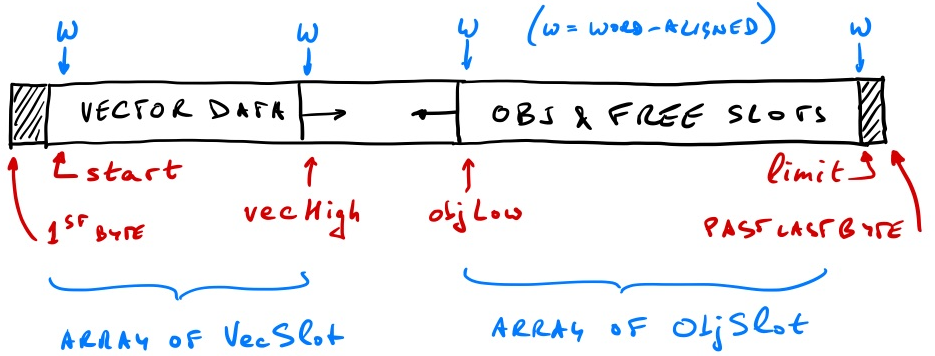 W W W (W = WORD-ALIGNED) W
VECTOR DATA OBJ & FREE SLOTS
start limit
vecHigh objLow
1ST BYTE PAST LAST BYTE
ARRAY OF VecSlot ARRAY OF ObjSlot